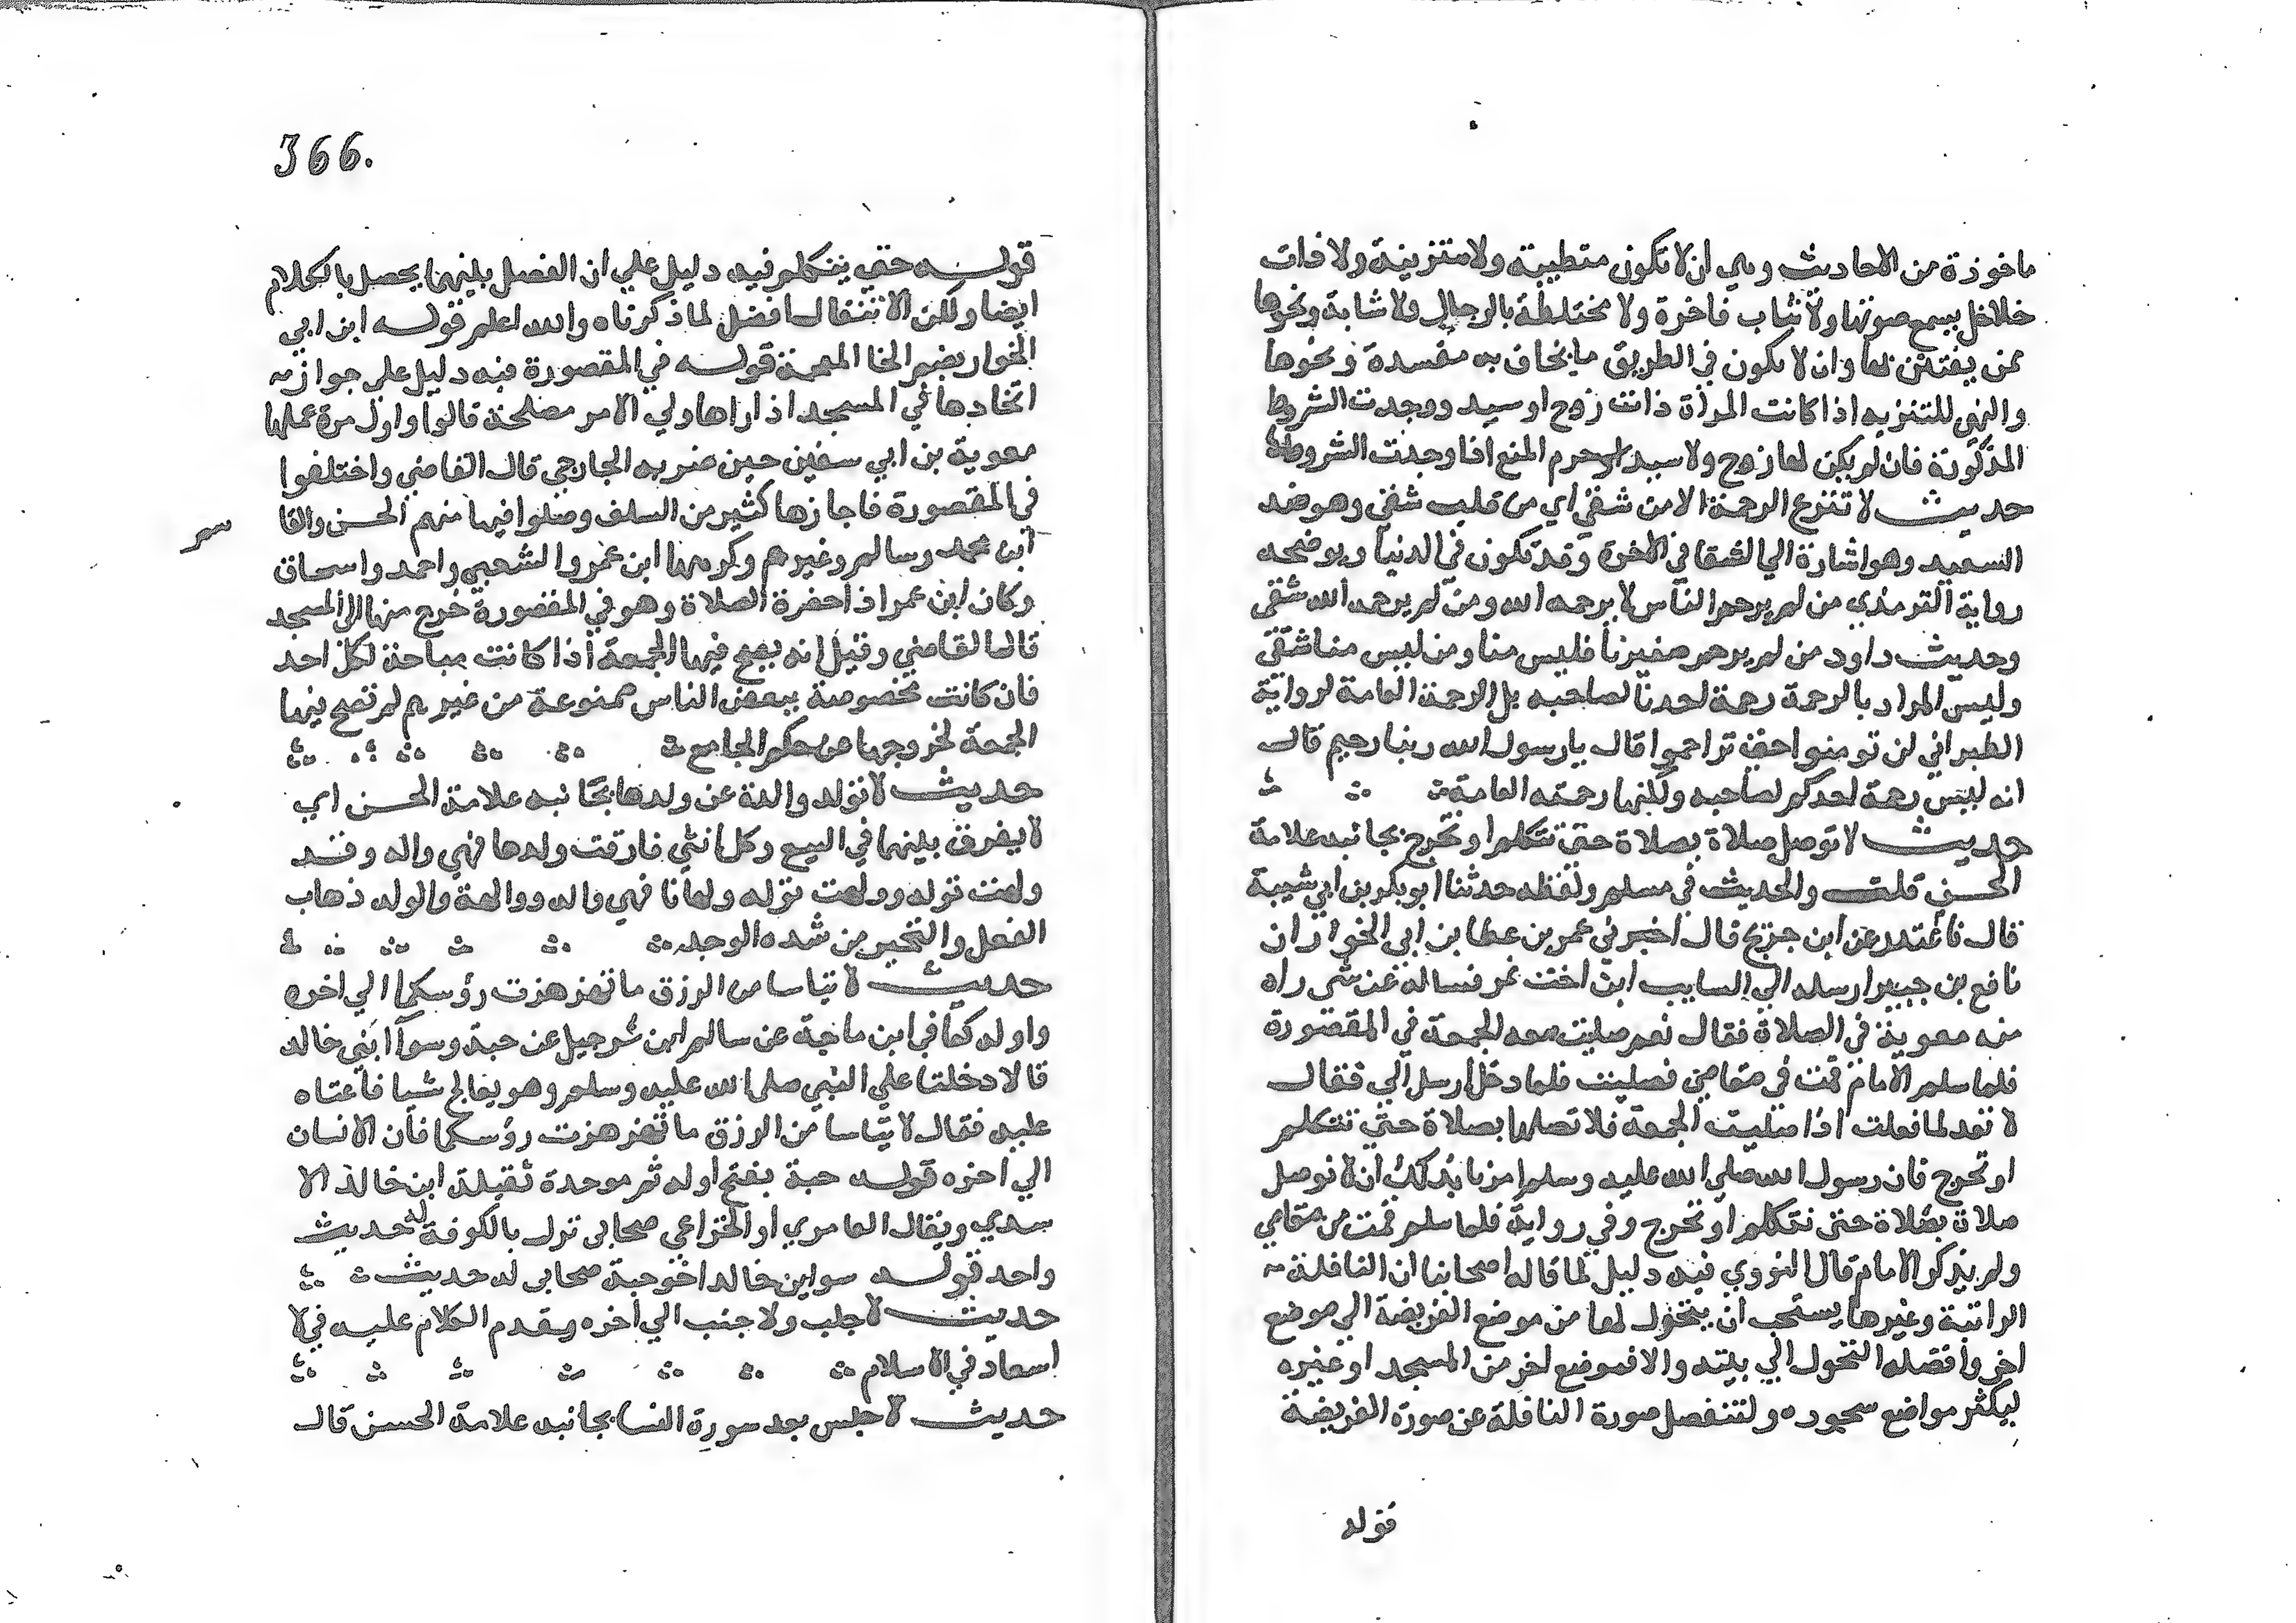 ماخوذة من الاحاديث وهي ان لا تكون متطيبة ولا متزينة ولا ذات
خلاخل يسمع صوتها ولا ثياب فاخرة ولا مختلطة بالرجال ولا شابة ونحوها
ممن يفتتن بها وان لا يكون في الطريق ما يخاف به مفسدة ونحوها
والنهي للتنزيه اذا كانت المراة ذات زوج او سيد ووجدت الشروط
المذكورة فان لم يكن لها زوج ولا سيد حرم المنع اذا وجدت الشروط
حديث لا تنزع الرحمة الا من شقي اي من قلب شقي وهو ضد
السعيد وهو اشارة الي الشقا في الاخرة وقد تكون في الدنيا ويوضحه
رواية الترمذي من لم يرحم الناس لا يرحمه الله ومن لم يرحمه الله شقي
وحديث داود من لم يرحم صغيرنا فليس منا ومن ليس منا شقي
وليس المراد بالرحمة رحمة احدنا لصاحبه بل الرحمة العامة لرواية
الطبراني لن تومنوا حتي تراحموا قال يا رسول الله ربنا رحيم قال
انه ليس رحمة احدكم لصاحبه ولكنها رحمة العامة
حديث لا توصل صلاة بصلاة حتي تتكلم او تخرج بجانبه علامة
الحسن قلت والحديث في مسلم ولفظه حدثنا ابو بكر بن ابي شيبة
قال نا غندر عن ابن جريج قال اخبرني عمر بن عطا بن ابي الخوار ان
نافع بن جبير ارسله الي السايب ابن اخت نمر فساله عن شي راه
منه معوية في الصلاة فقال نعم صليت معه الجمعة في المقصورة
فلما سلم الامام قمت في مقامي فصليت فلما دخل ارسل الي فقال
لا تعد لما فعلت اذا صليت الجمعة فلا تصلها بصلاة حتي تتكلم
او تخرج فان رسول الله صلي الله عليه وسلم امرنا بذلك ان لا نوصل
صلاة بصلاة حتي نتكلم او نخرج وفي رواية فلما سلم قمت من مقامي
ولم يذكر الامام قال النووي فيه دليل لما قاله اصحابنا ان النافلة
الراتبة وغيرها يستحب ان يتحول لها من موضع الفريضة الي موضع
اخر وافضله التحول الي بيته والا فموضع اخر من المسجد او غيره
ليكثر مواضع سجوده ولتنفصل صورة النافلة عن صورة الفريضة
قوله
366.
قوله حتي يتكلم فيه دليل علي ان الفصل بينهما يحصل بالكلام
ايضا ولكن الانتقال افضل لما ذكرناه والله اعلم قوله ابن ابي
الخوار بضم الخا المعجمة قوله في المقصورة فيه دليل علي جواز
اتخادها في المسجد اذا راها ولي الامر مصلحة قالوا واول من عملها
معوية بن ابي سفين حين ضربه الخارجي قال القاضي واختلفوا
في المقصورة فاجازها كثير من السلف وصلوا فيها منهم الحسن والقا
سم
ابن محمد وسالم وغيرهم وكرهها ابن عمر والشعبي واحمد واسحاق
وكان ابن عمر اذا حضرة الصلاة وهو في المقصورة خرج منها الي المسجد
قال القاضي وقيل انه يصح فيها الجمعة اذا كانت مباحة لكل احد
فان كانت مخصوصة ببعض الناس ممنوعة من غيرهم لم تصح فيها
الجمعة لخروجها عن حكم الجامع
حديث لا توله والدة عن ولدها بجانبه علامة الحسن اي
لا يفرق بينهما في البيع وكل انثي فارقت ولدها فهي واله وقد
ولهت توله وولهت توله ولهانا فهي واله ووالهة والوله ذهاب
العقل والتحير من شده الوجد
حديث لا تياسا من الرزق ما تهزهزت رؤسكما الي اخره
واوله كما في ابن ماجة عن سالم ابن شرجيل عن حبة وسوآ ابني خالد
قالا دخلنا علي النبي صلي الله عليه وسلم وهو يعالج شيا فاعناه
عليه فقال لا تياسا من الرزق ما تهزهزت رؤسكما فان الانسان
الي اخره قوله حبة بفتح اوله ثم موحدة ثقيلة ابن خالد الا
سدي ويقال العامري او الخزاعي صحابي نزل بالكوفة له حديث
واحد قوله سوا بن خالد اخو حبة صحابي له حديث
حديث لا جلب ولا جنب الي اخره وتقدم الكلام عليه في لا
اسعاد في الاسلام
حديث لا حبس بعد سورة النسا بجانبه علامة الحسن قال